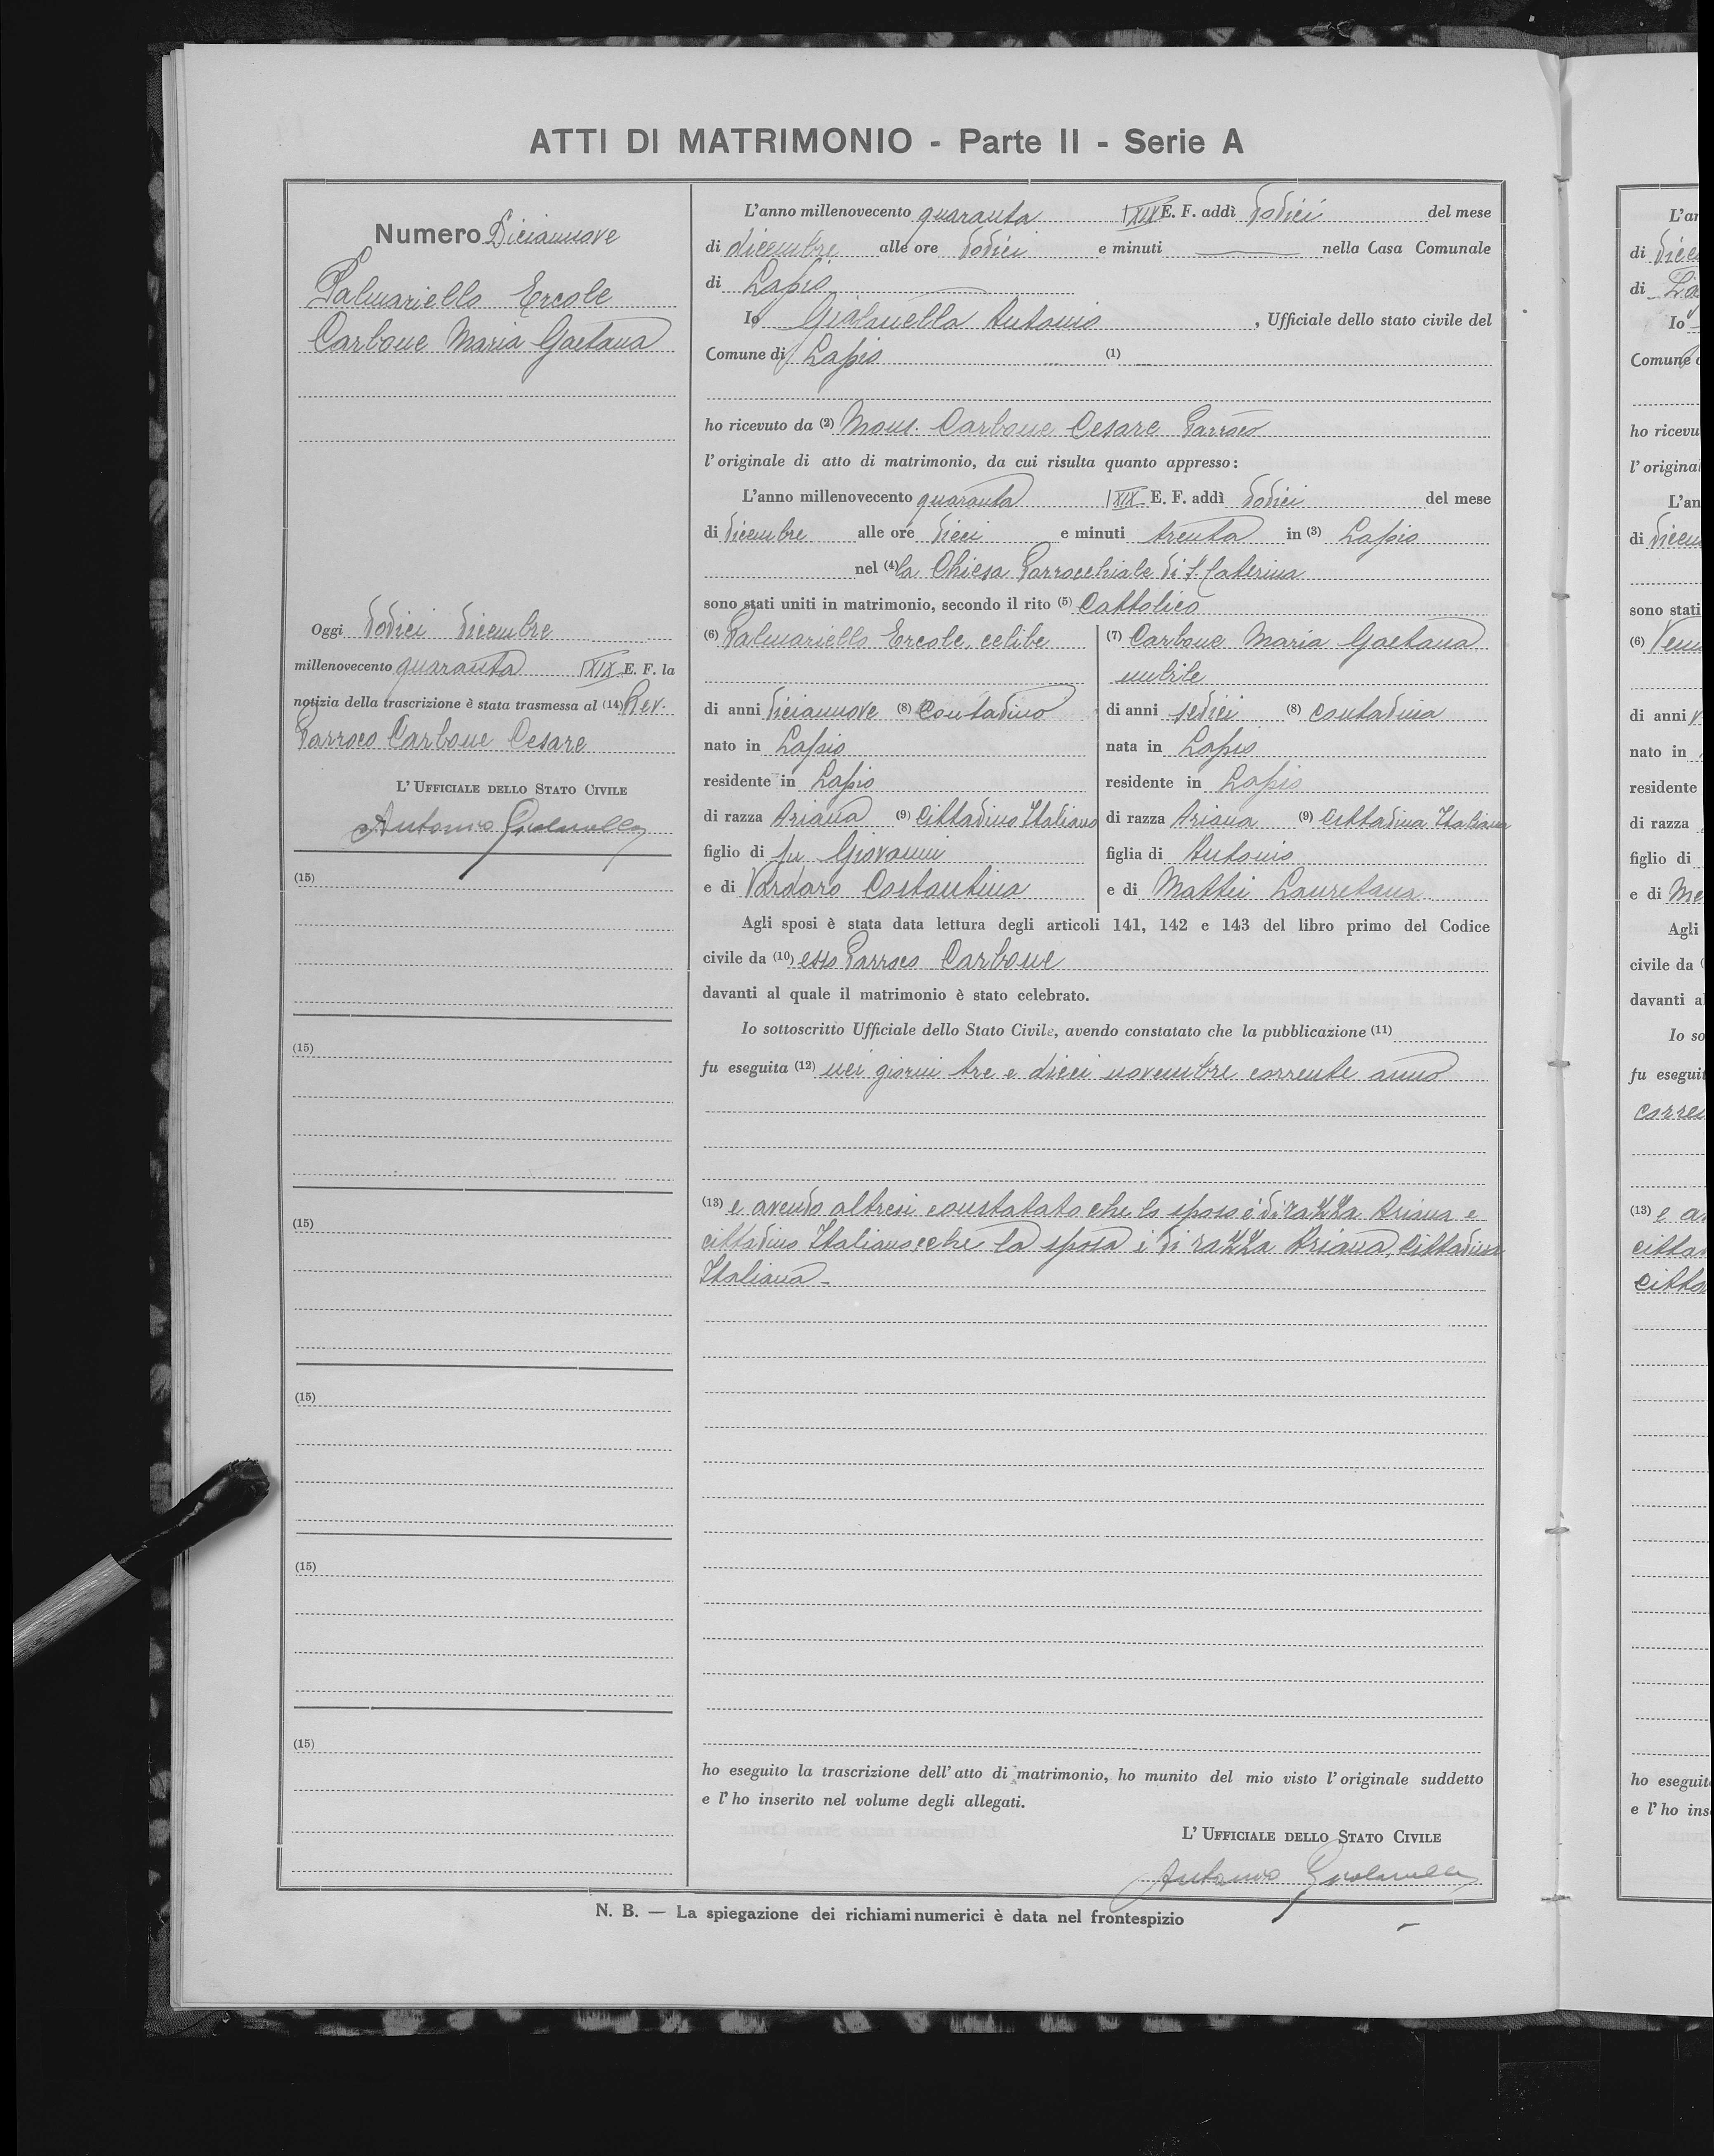 ATTI DI MATRIMONIO - Parte II - Serie A
Numero Diciannove
Palmariello Ercole
Carbone Maria Gaetana
Oggi dodici dicembre
millenovecento quaranta XIX E. F. la
notizia della trascrizione è stata trasmessa al (14) Rev.
Parroco Carbone Cesare
L'UFFICIALE DELLO STATO CIVILE
Antonio
(15)
(15)
(15)
(15)
(15)
(15)
L'anno millenovecento quaranta XIX E. F. addì dodici del mese
di dicembre alle ore dodici e minuti nella Casa Comunale
di Lapio
Io Antonio, Ufficiale dello stato civile del
Comune di Lapio (1)
ho ricevuto da (2) Mons. Carbone Cesare Parroco
l'originale di atto di matrimonio, da cui risulta quanto appresso:
L'anno millenovecento quaranta XIX E. F. addì dodici del mese
di dicembre alle ore dieci e minuti trenta in (3) Lapio
nel (4) la Chiesa Parrocchiale di S. Caterina
sono stati uniti in matrimonio, secondo il rito (5) Cattolico
(6) Palmariello Ercole, celibe
di anni diciannove (8) contadino
nato in Lapio
residente in Lapio
di razza Ariana (9) cittadino Italiano
figlio di fu Giovanni
e di Vardaro Costantina
(7) Carbone Maria Gaetana
nubile
di anni sedici (8) contadina
nata in Lapio
residente in Lapio
di razza Ariana (9) cittadina Italiana
figlia di Antonio
e di Mattei Lauretana
Agli sposi è stata data lettura degli articoli 141, 142 e 143 del libro primo del Codice
civile da (10) esso Parroco Carbone
davanti al quale il matrimonio è stato celebrato.
Io sottoscritto Ufficiale dello Stato Civile, avendo constatato che la pubblicazione (11)
fu eseguita (12) nei giorni tre e dieci novembre corrente anno
(13) e avendo altresì constatato che lo sposo è di razza Ariana e
cittadino Italiano e che la sposa è di razza Ariana, cittadina
Italiana -
ho eseguito la trascrizione dell'atto di matrimonio, ho munito del mio visto l'originale suddetto
e l'ho inserito nel volume degli allegati.
L'UFFICIALE DELLO STATO CIVILE
Antonio
N. B. — La spiegazione dei richiami numerici è data nel frontespizio
di
di
Io
ho
di
nel
sono stati
(6)
di anni
nato in
residente
di razza
figlio di
e di
Agli
civile da
davanti
Io
(13) e
ho
e l'ho